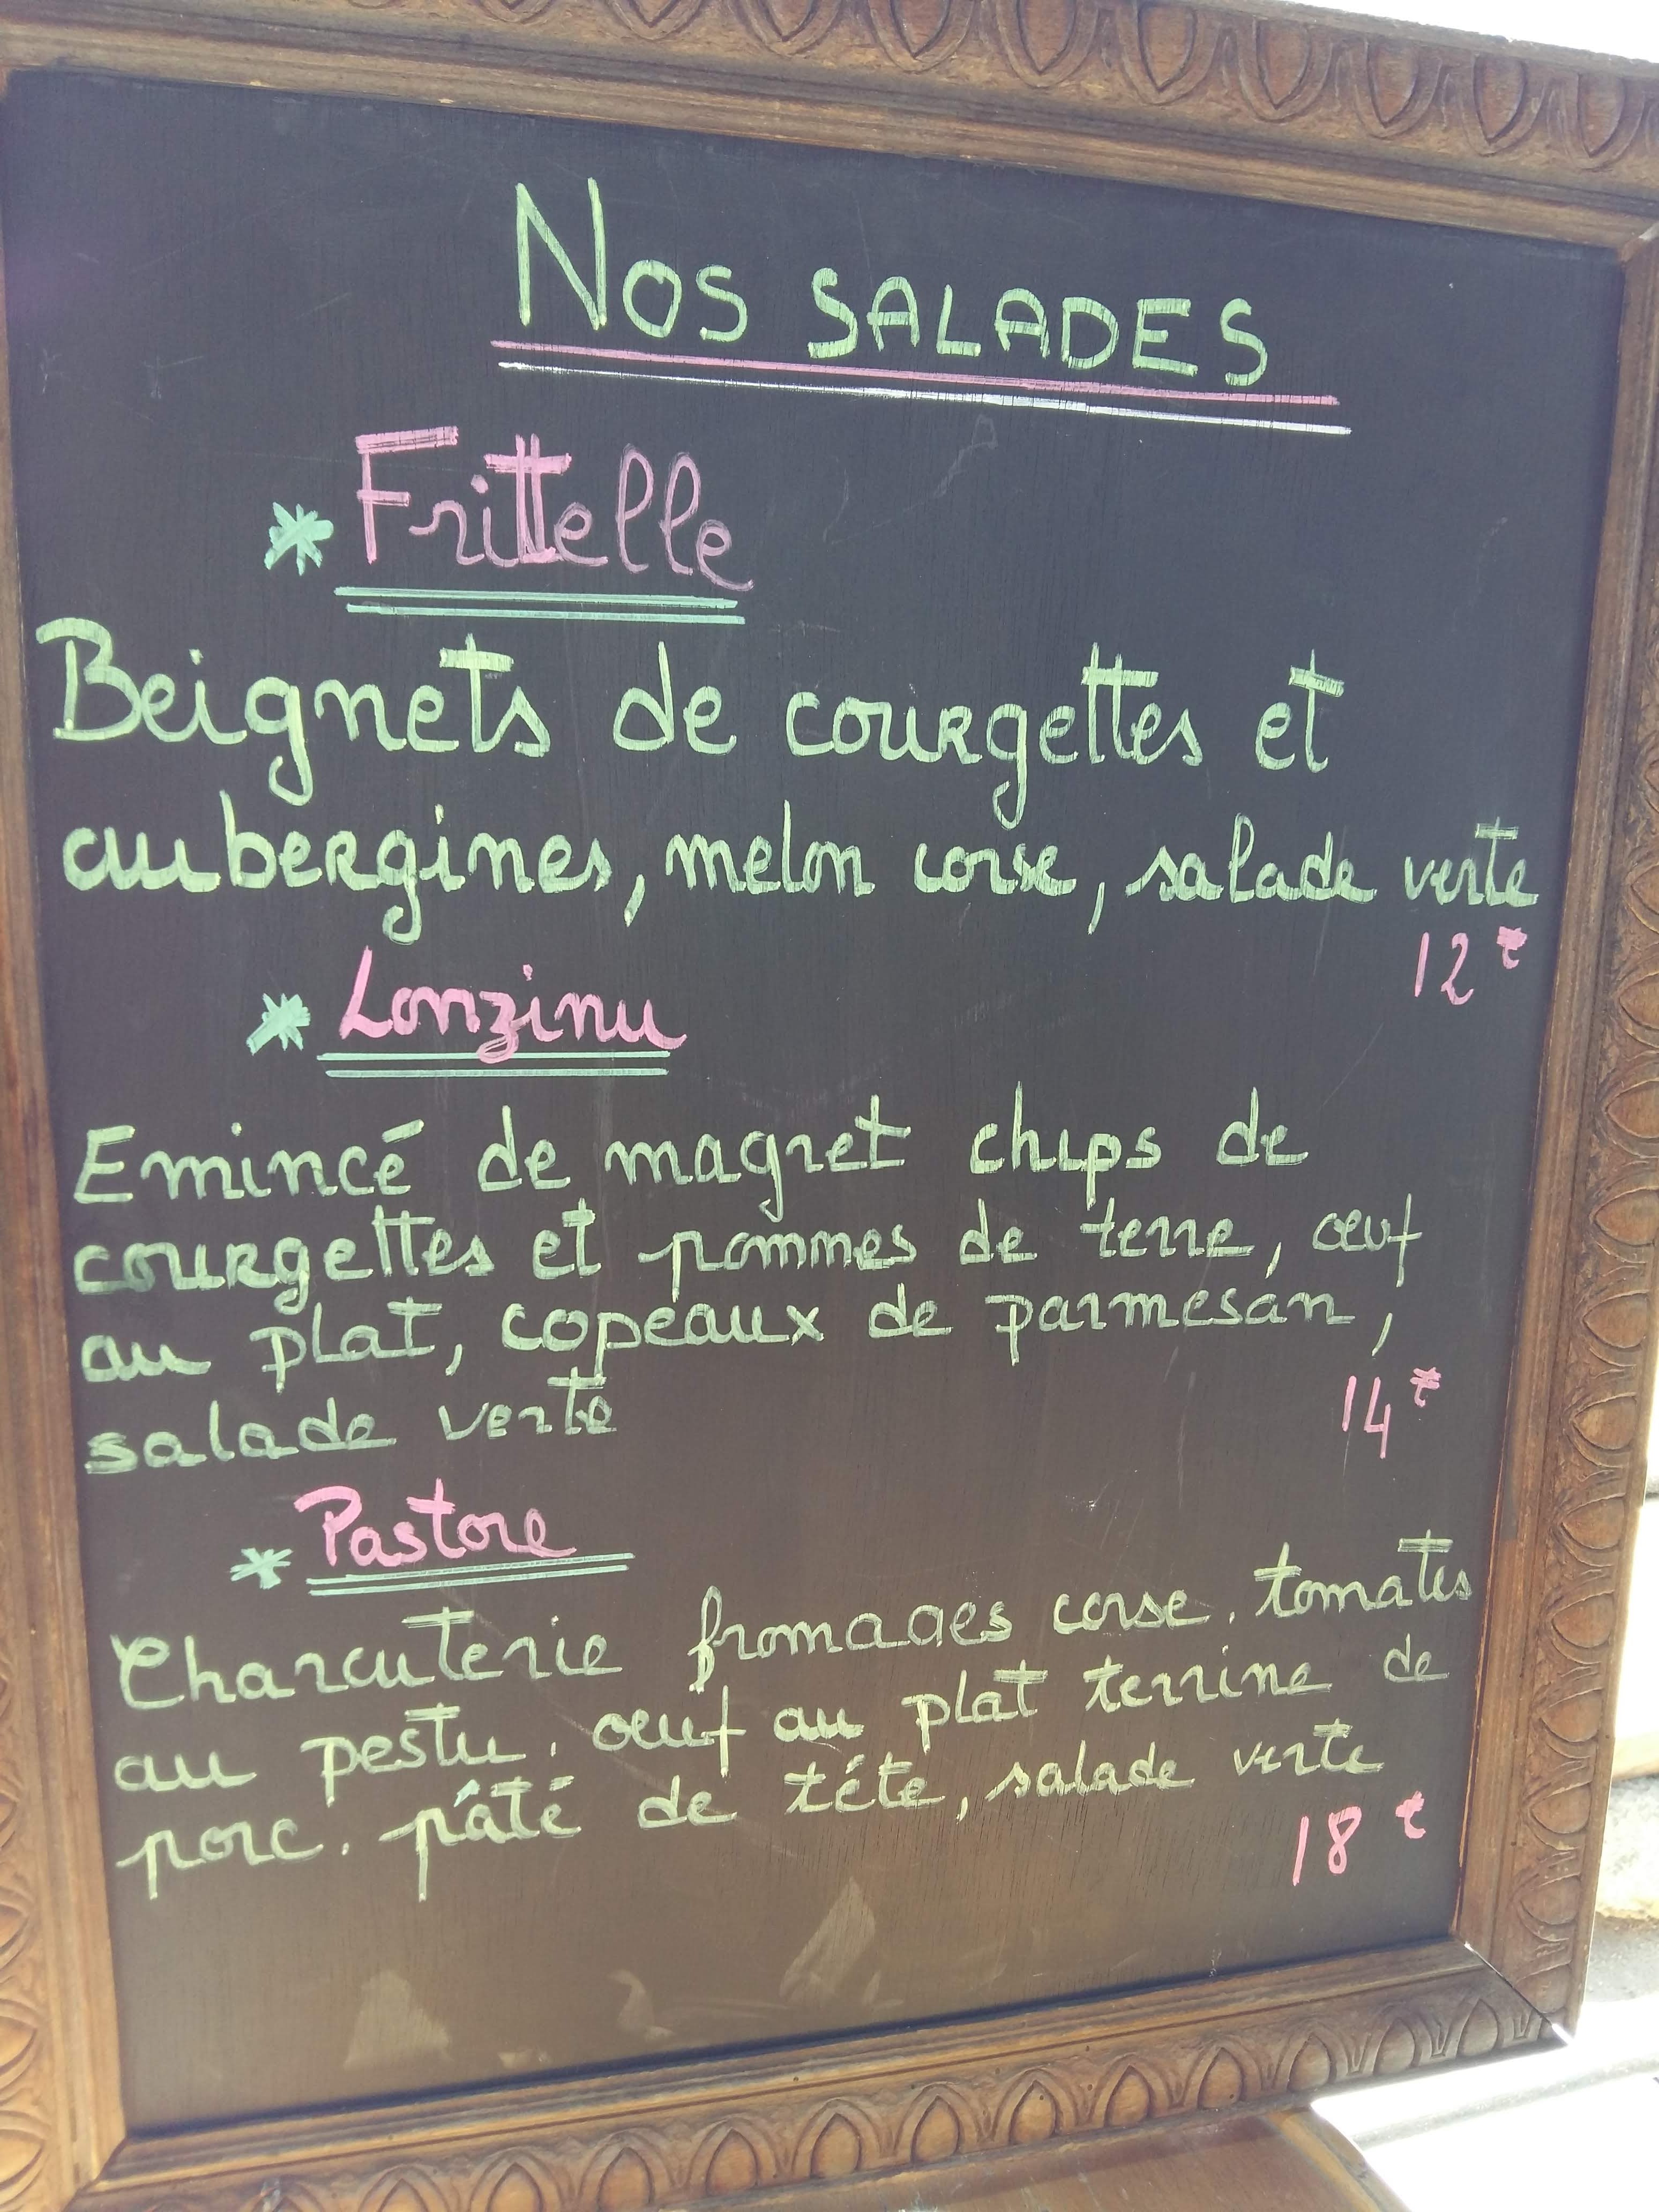 NOS SALADES
* Frittelle
Beignets de courgettes et
aubergines, melon corse, salade verte
12€
* Lonzinu
Emincé de magret chips de
courgettes et pommes de terre, œuf
au plat, copeaux de parmesan,
salade verte 14€
* Pastore
Charcuterie fromages corse. tomates
au pestu. œuf au plat terrine de
porc. pâté de téte, salade verte
18€